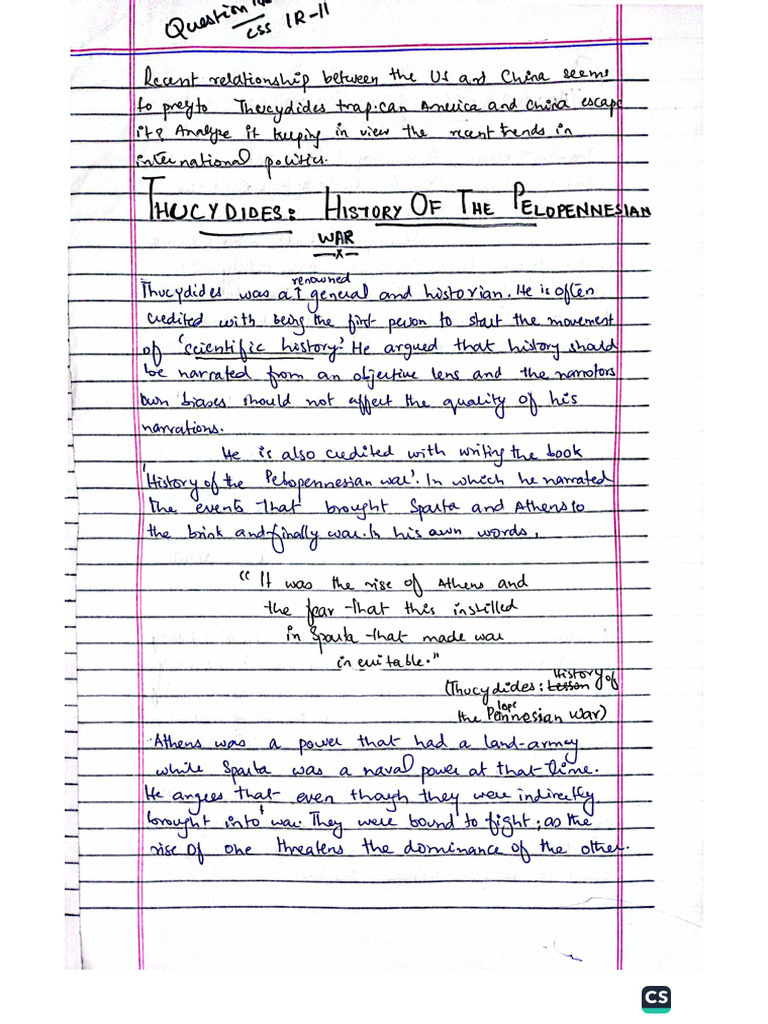 Question
CSS IR-II
Recent relationship between the US and China seems
to prey to Thucydides trap. can America and China escape
it? Analyze it keeping in view the recent trends in
international politics.
THUCYDIDES: HISTORY OF THE PELOPENNESIAN
WAR
—x—
renowned
Thucydides was a↑ general and historian. He is often
credited with being the first person to start the movement
of 'scientific history'. He argued that history should
be narrated from an objective lens and the narrotors
own biases should not affect the quality of his
narrations.
He is also credited with writing the book
'History of the Pelopennesian war'. In which he narrated
the events that brought Sparta and Athens to
the brink and finally war. In his own words,
"It was the rise of Athens and
the fear that this instilled
in Sparta that made war
inevitable."
History
(Thucydides: Lesson of
lope
the Pennesian War)
Athens was a power that had a land-army
while Sparta was a naval power at that time.
He argues that even though they were indirectly
brought into war. They were bound to fight; as the
rise of one threatens the dominance of the other.
CS